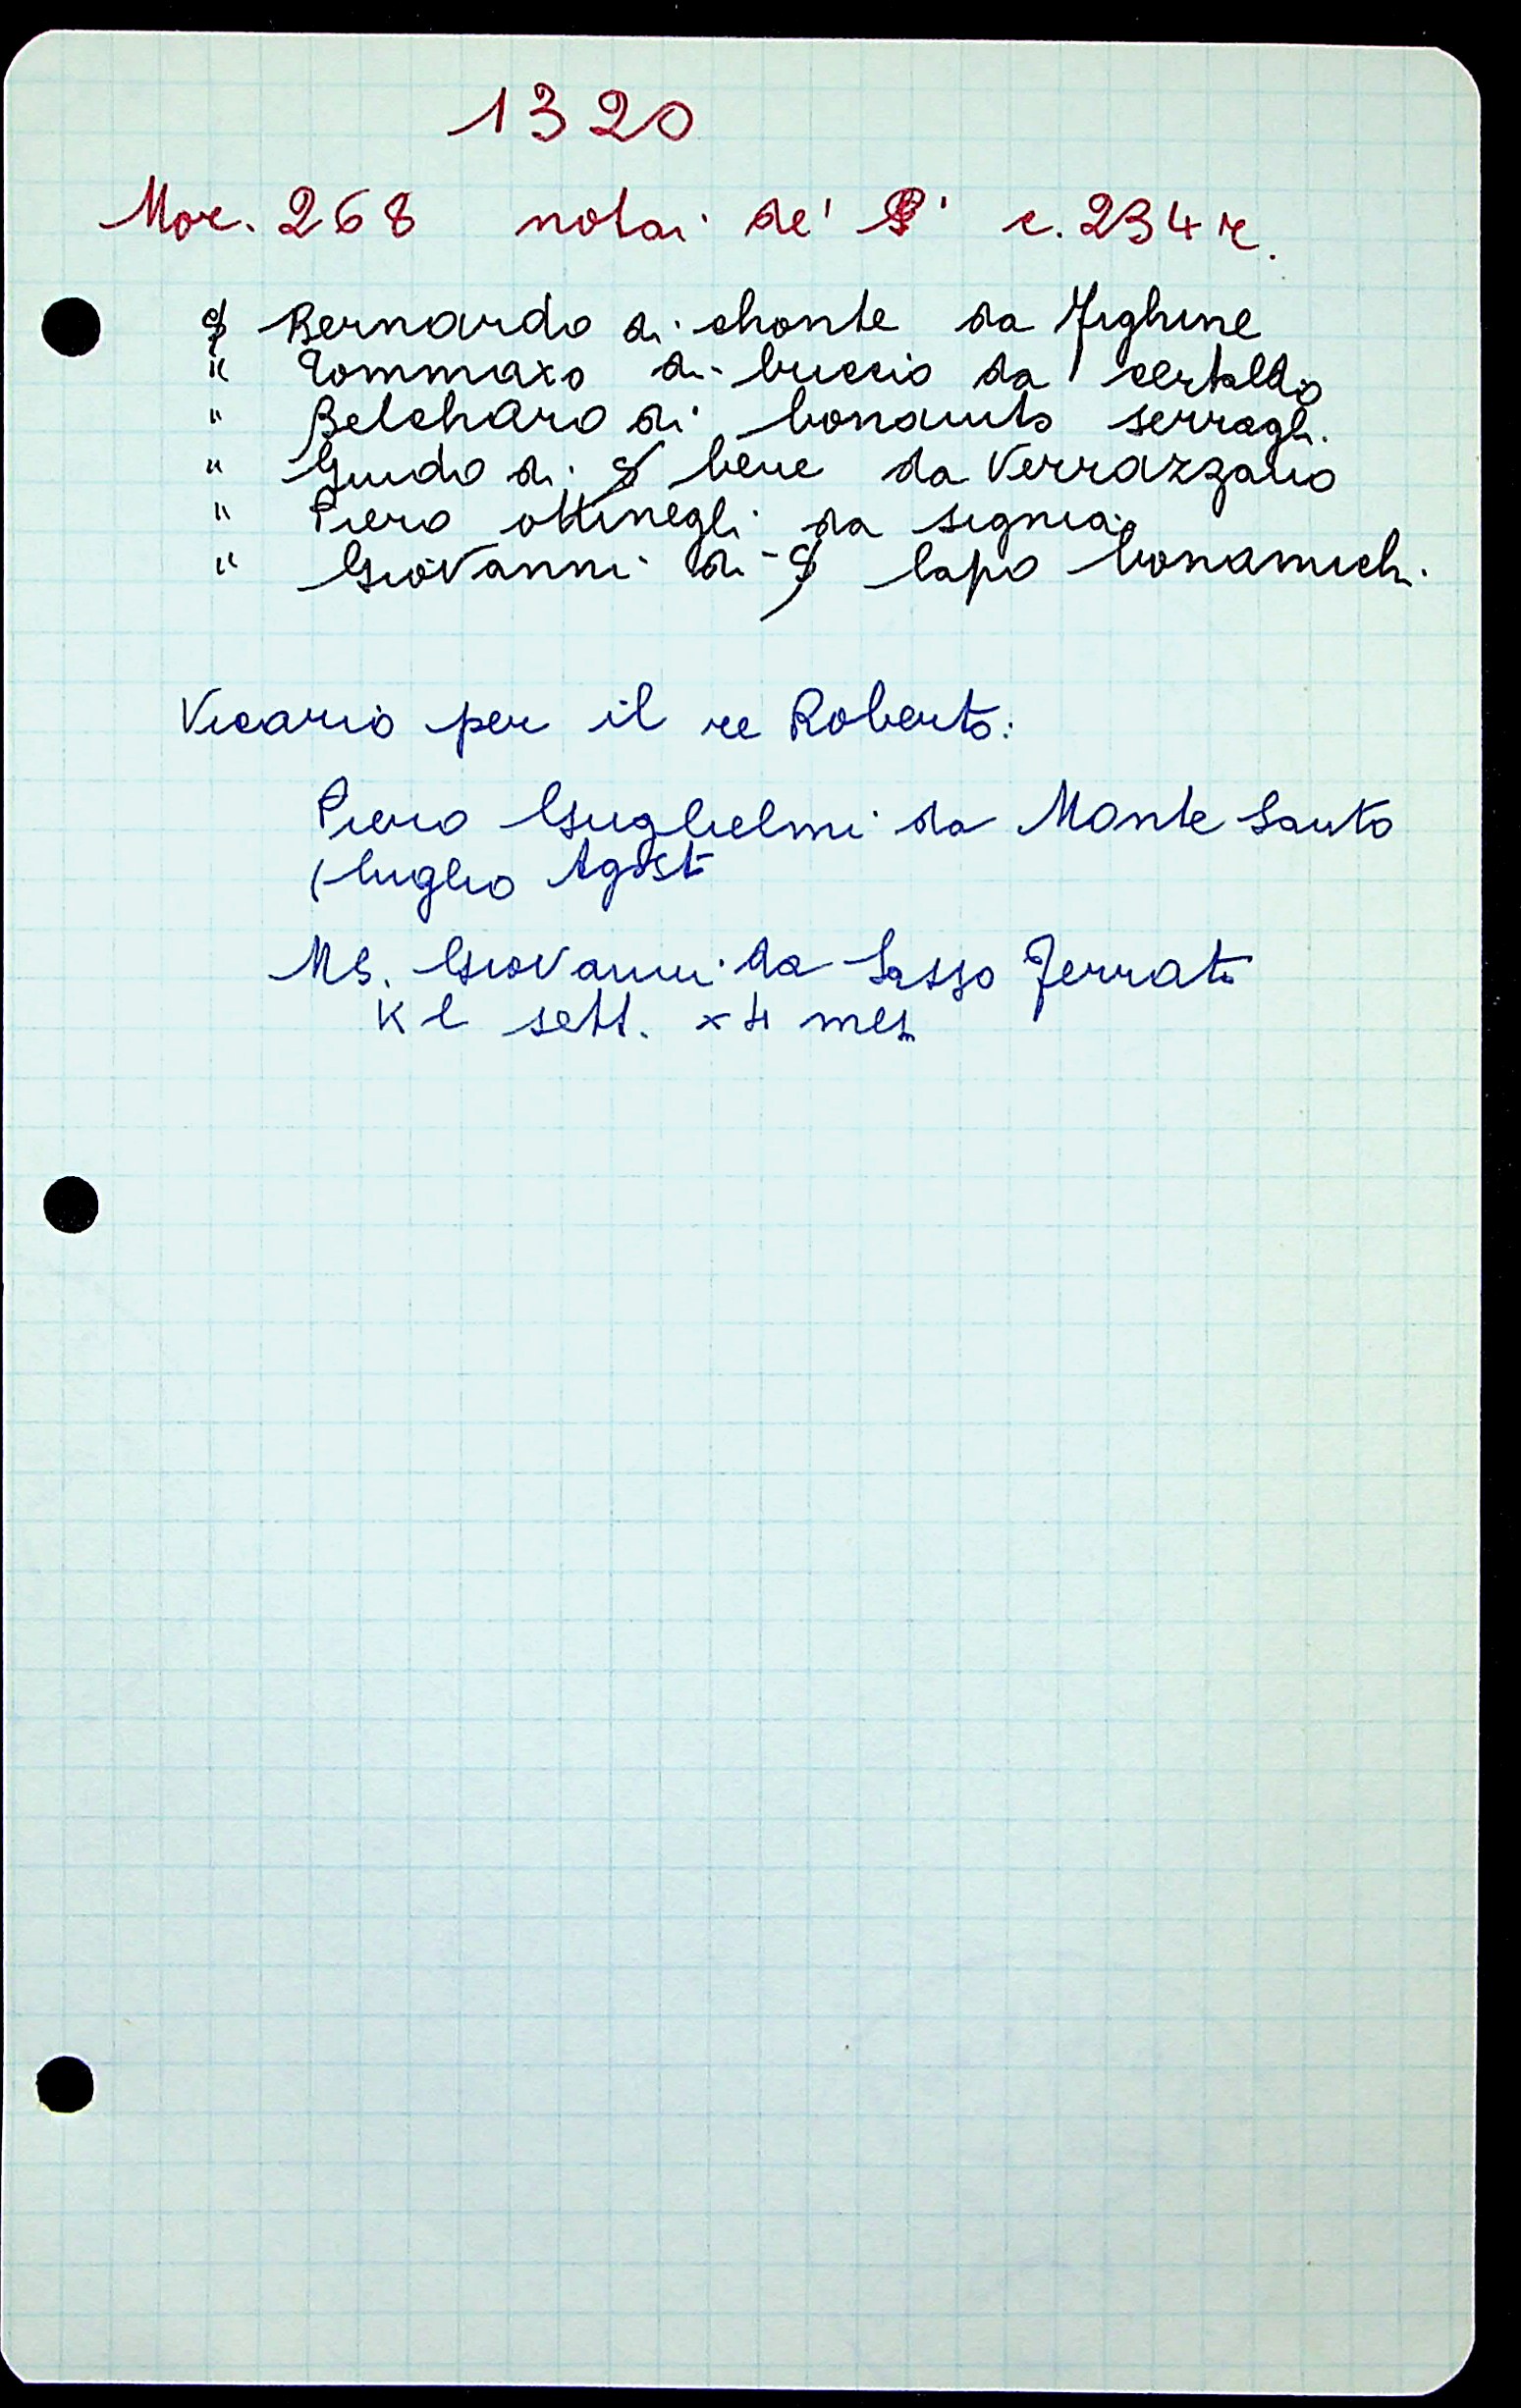 1320
Mor. 268 notai de' P' c. 234 r.
S Bernardo di chonte da Fighine
" Tommaxo di buccio da certaldo
" Belcharo di bonaiuto serragli
" Guido di S bene da Verrazzano
" Piero ottinegli da signia
" Giovanni di S lapo bonamichi
Vicario per il re Roberto:
Piero Guglielmi da Monte Santo
(luglio Agost
MS. Giovanni da Sasso Ferrato
Kl sett. x 4 mesi